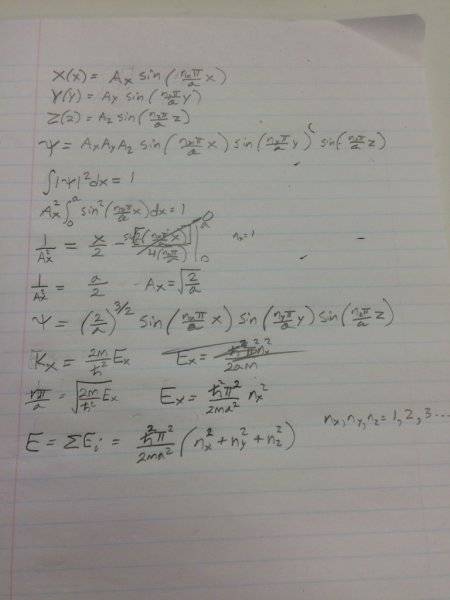 X(x) = Ax sin(nxπ/a x)
Y(y) = Ay sin(nyπ/a y)
Z(z) = Az sin(nzπ/a z)
Ψ = AxAyAz sin(nxπ/a x) sin(nyπ/a y) sin(nzπ/a z)
∫|Ψ|²dx = 1
Ax² ∫₀ᵃ sin²(nxπ/a x)dx = 1
1/Ax² = x/2 - sin(2(nxπ/a x))/4(nxπ/a) |₀ nx=1
1/Ax² = a/2 Ax = √(2/a)
Ψ = (2/a)^3/2 sin(nxπ/a x) sin(nyπ/a y) sin(nzπ/a z)
Kx = 2m/ħ² Ex Ex = ħ²π²nx²/2am
nπ/a = √(2m/ħ² Ex) Ex = ħ²π²/2ma² nx²
nx, ny, nz = 1, 2, 3 ...
E = ΣEi = ħ²π²/2ma² (nx² + ny² + nz²)